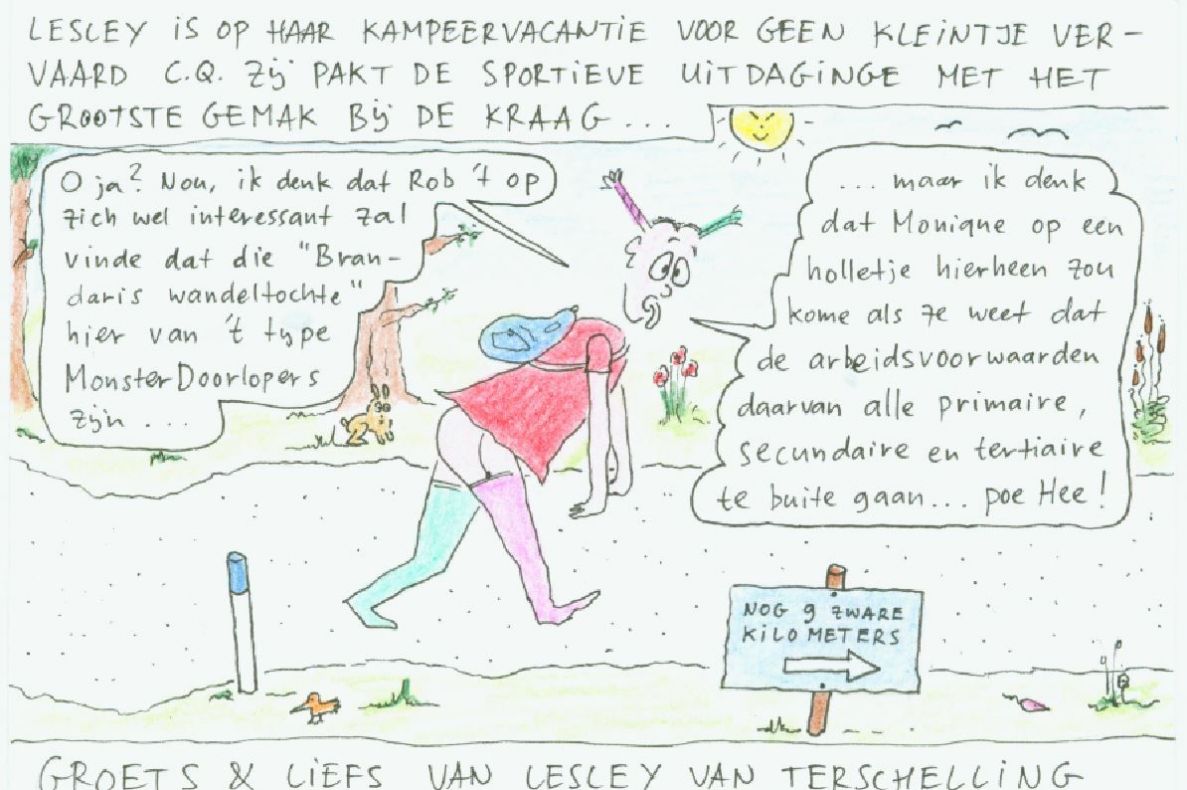 LESLEY IS OP HAAR KAMPEERVACANTIE VOOR GEEN KLEINTJE VER-
VAARD C.Q. ZIJ PAKT DE SPORTIEVE UITDAGINGE MET HET
GROOTSTE GEMAK BIJ DE KRAAG...
O ja? Nou, ik denk dat Rob 't op
zich wel interessant zal
vinde dat die "Bran-
daris wandeltochte"
hier van 't type
MonsterDoorlopers
zijn ....
... maar ik denk
dat Monique op een
holletje hierheen zou
kome als ze weet dat
de arbeidsvoorwaarden
daarvan alle primaire,
secundaire en tertiaire
te buite gaan... poe Hee!
NOG 9 ZWARE
KILOMETERS
GROETS & LIEFS VAN LESLEY VAN TERSCHELLING